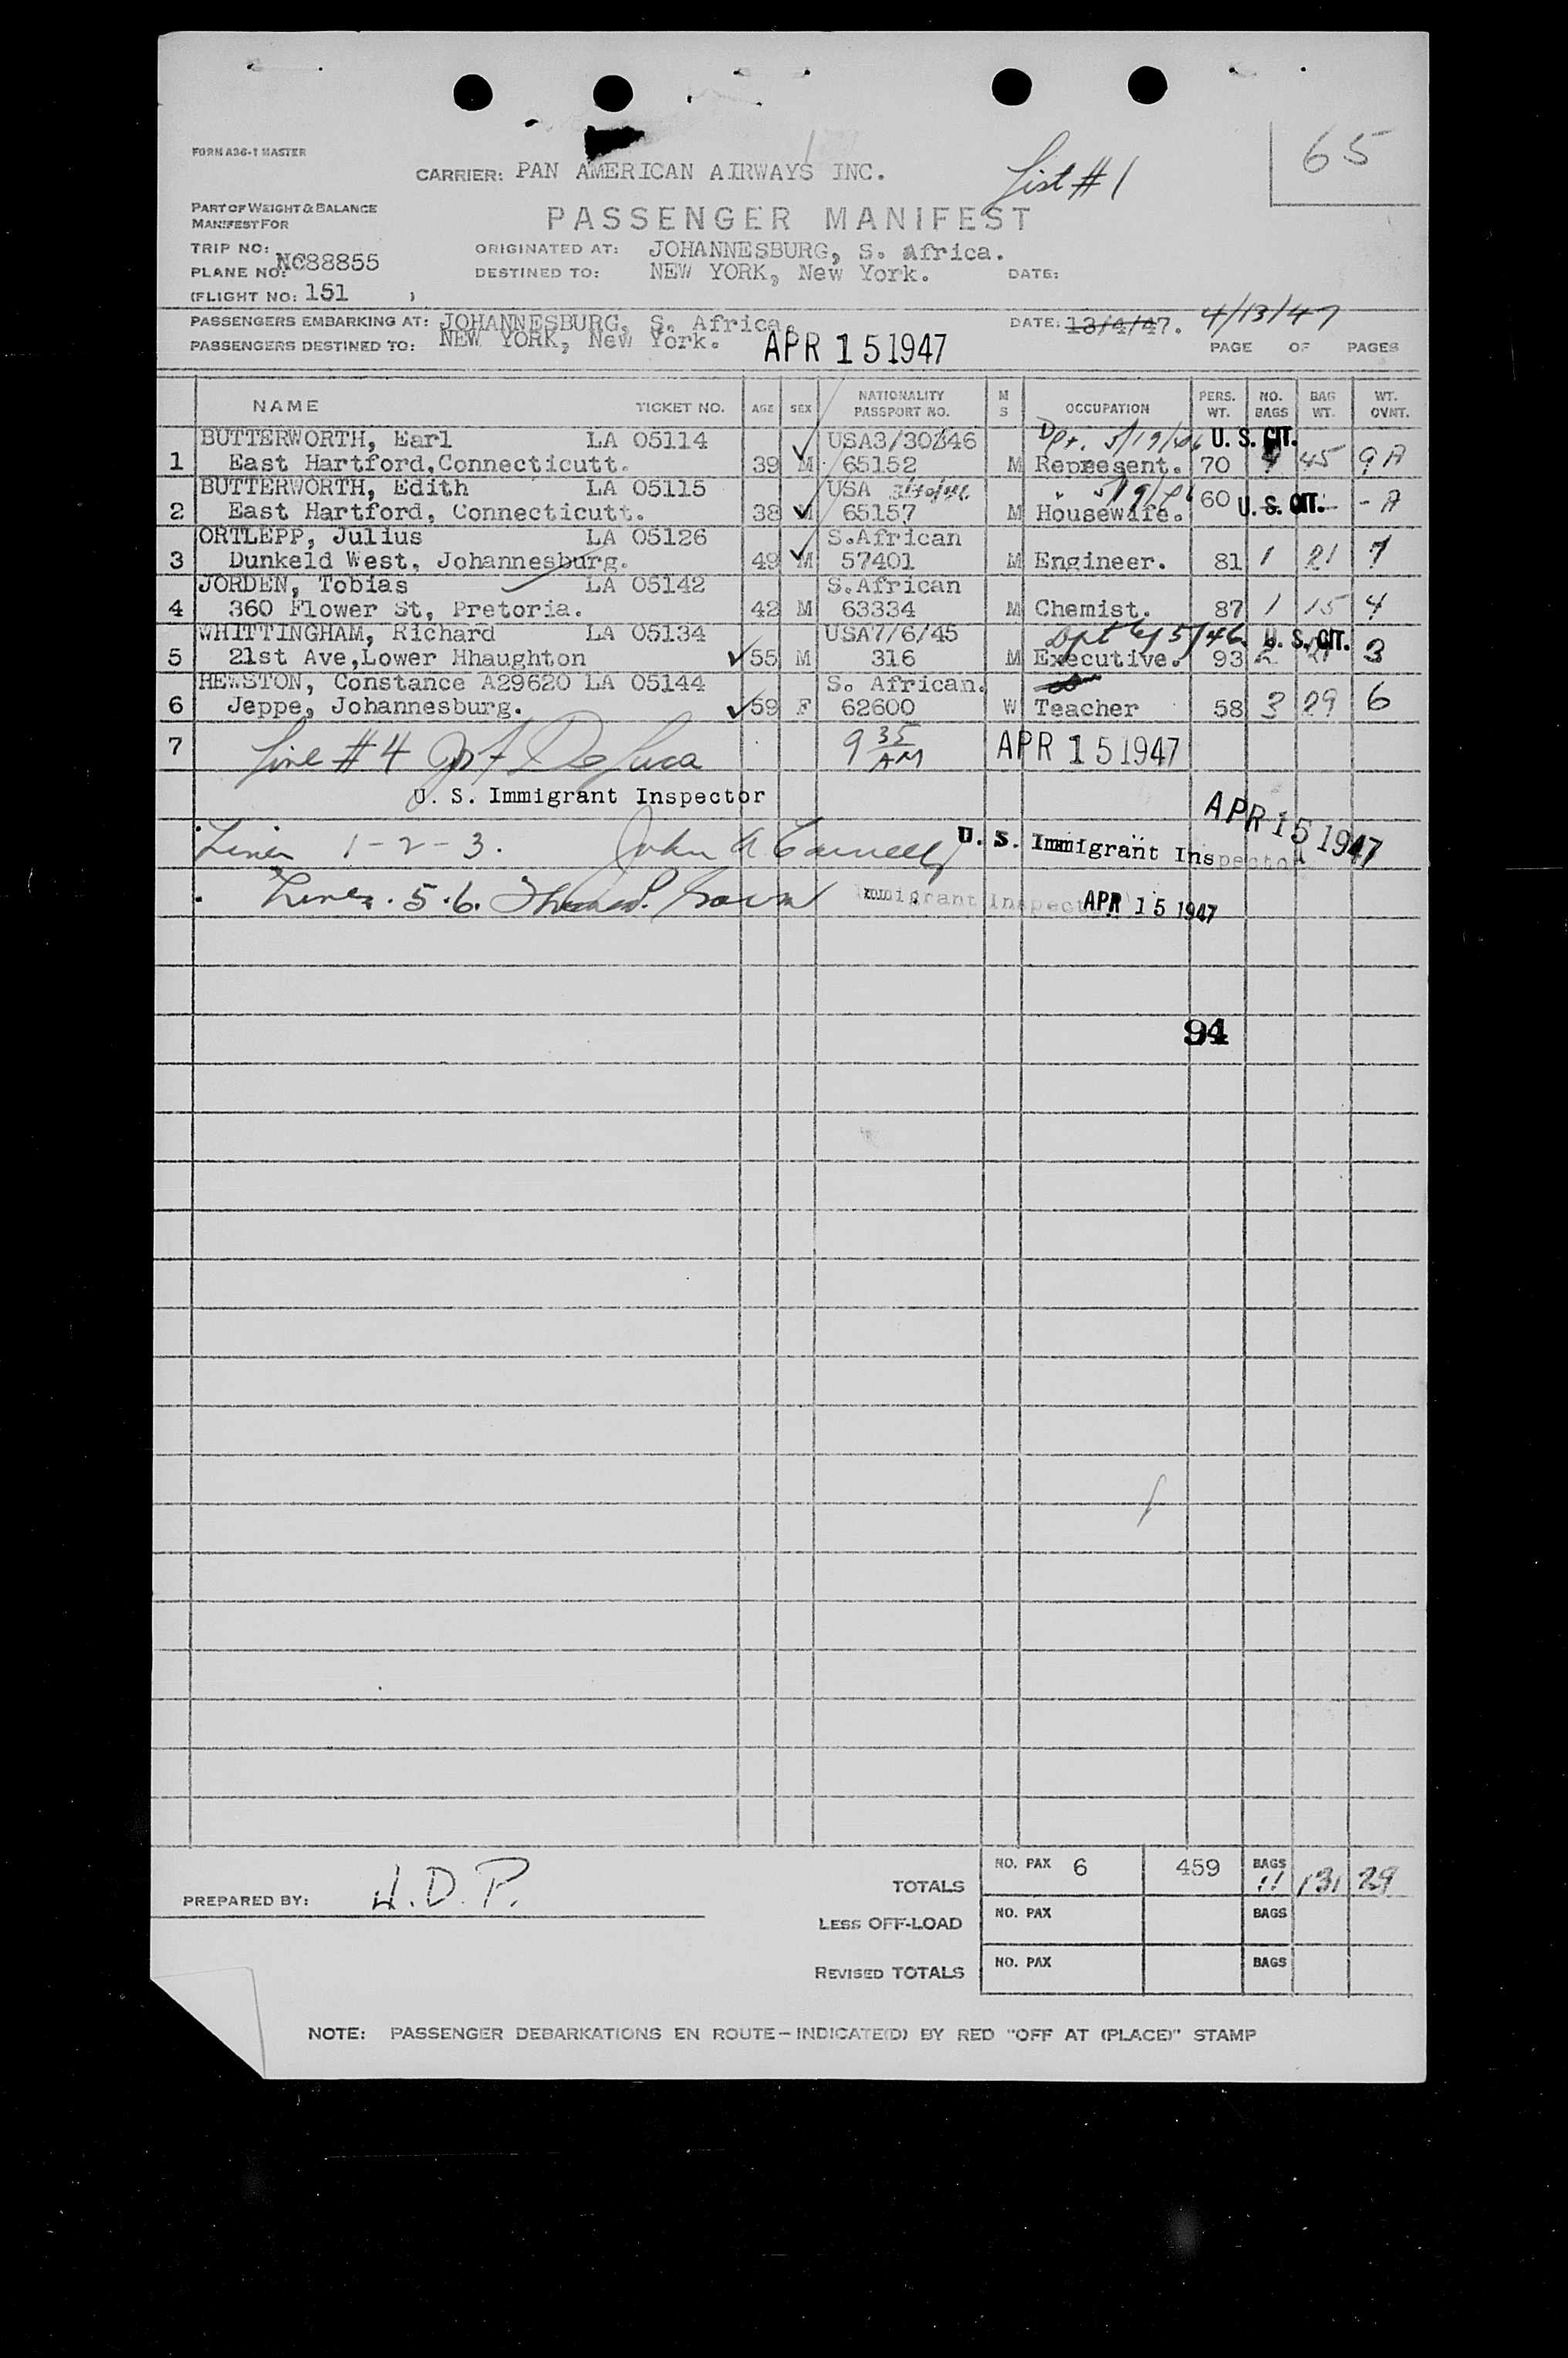 65
FORM A36-1 MASTER
CARRIER: PAN AMERICAN AIRWAYS INC.
List #1
PART OF WEIGHT & BALANCE
MANIFEST FOR
PASSENGER MANIFEST
TRIP NO:
ORIGINATED AT: JOHANNESBURG, S. Africa.
PLANE NO: NC88855
DESTINED TO: NEW YORK, New York. DATE:
(FLIGHT NO: 151 )
PASSENGERS EMBARKING AT: JOHANNESBURG, S. Africa. DATE: 13/4/47. 4/13/47
PASSENGERS DESTINED TO: NEW YORK, New York. APR 15 1947 PAGE OF PAGES
NAME TICKET NO. AGE SEX NATIONALITY PASSPORT NO. M S OCCUPATION PERS. WT. NO. BAGS BAG WT. WT. OVNT.
BUTTERWORTH, Earl LA 05114 USA3/30/46 Dpt. 5/19/46 U. S. CIT.
1 East Hartford,Connecticutt. 39 M 65152 M Represent. 70 4 45 9 A
BUTTERWORTH, Edith LA 05115 USA 3/30/46 " 5/19/46
2 East Hartford, Connecticutt. 38 M 65157 M Housewife. 60 U. S. CIT. - A
ORTLEPP, Julius LA 05126 S.African
3 Dunkeld West, Johannesburg. 49 M 57401 M Engineer. 81 1 21 7
JORDEN, Tobias LA 05142 S.African
4 360 Flower St, Pretoria. 42 M 63334 M Chemist. 87 1 15 4
WHITTINGHAM, Richard LA 05134 USA7/6/45 Dpt 5/46 U. S. CIT.
5 21st Ave,Lower Hhaughton 55 M 316 M Executive. 93 2 21 3
HEWSTON, Constance A29620 LA 05144 S. African.
6 Jeppe, Johannesburg. 59 F 62600 W Teacher 58 3 29 6
7 Line #4 DeLuca 9 35 AM APR 15 1947
U. S. Immigrant Inspector
Lines 1-2-3. John A U. S. Immigrant Inspector APR 15 1947
Lines. 5.6. Immigrant Inspector APR 15 1947
94
PREPARED BY: J.D.P.
TOTALS NO. PAX 6 459 BAGS 11 131 29
LESS OFF-LOAD NO. PAX BAGS
REVISED TOTALS NO. PAX BAGS
NOTE: PASSENGER DEBARKATIONS EN ROUTE - INDICATE(D) BY RED "OFF AT (PLACE)" STAMP